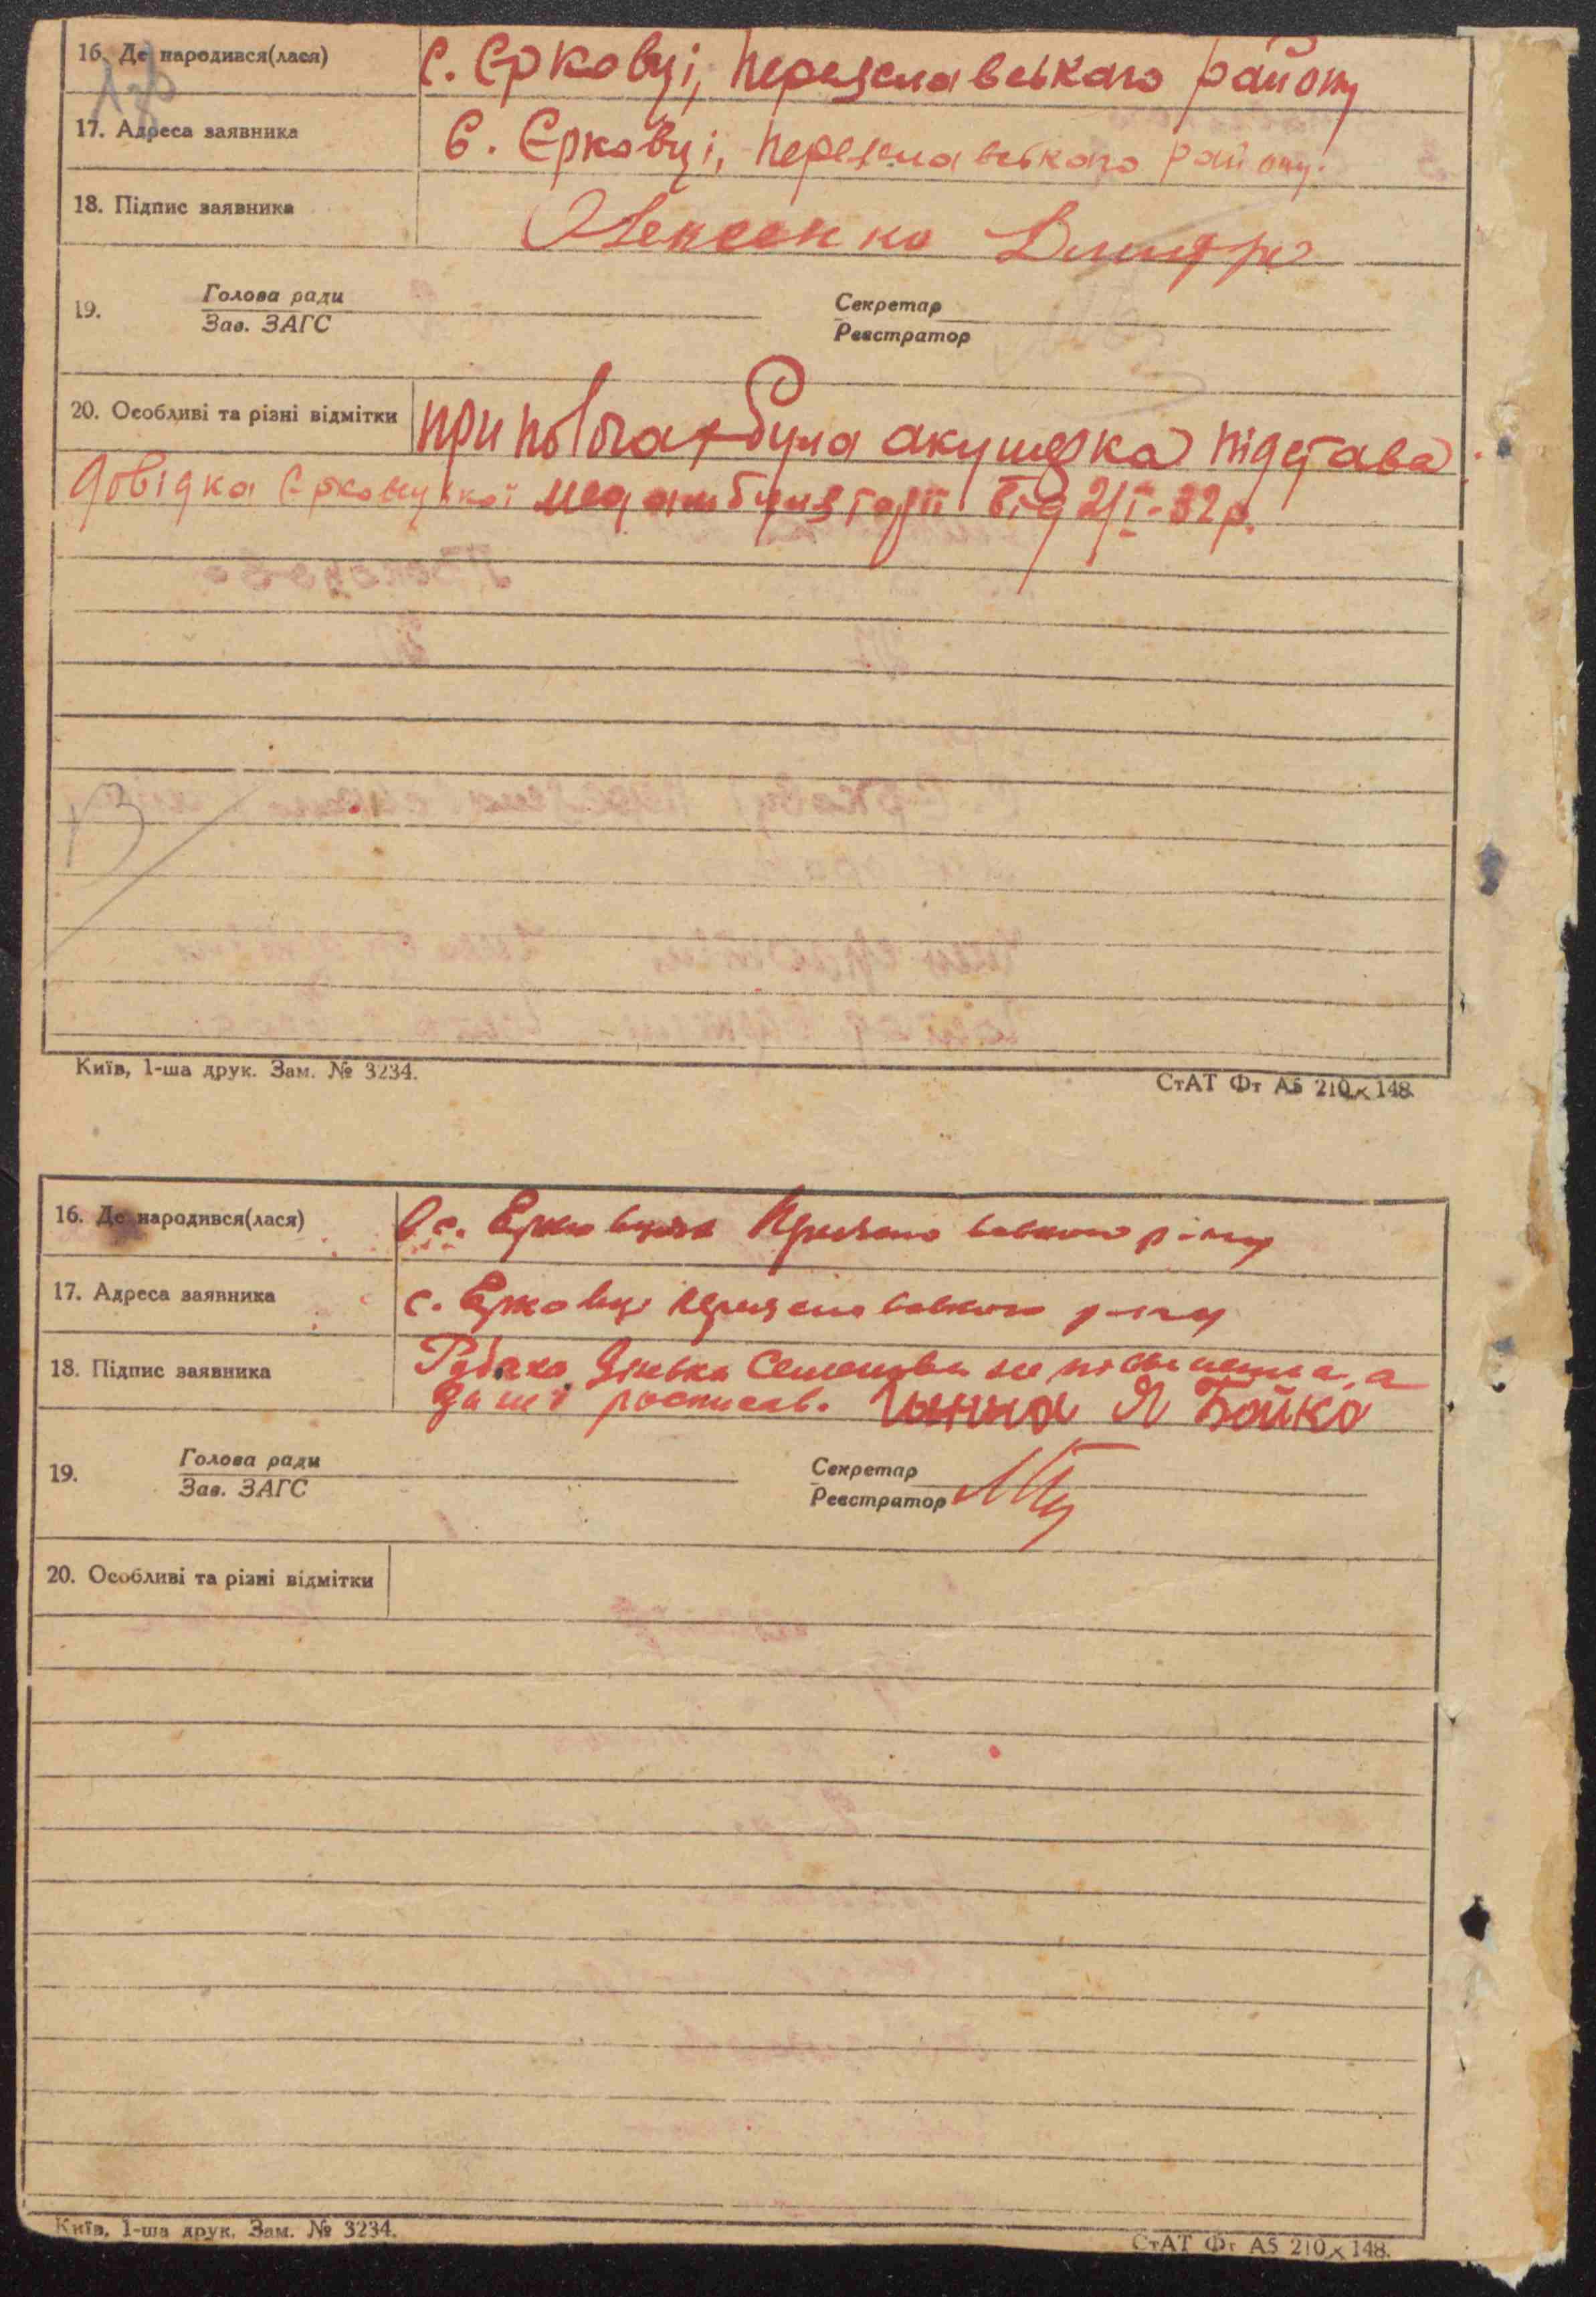 16. Де народився(лася) С. Єрковці, Переяславського району
17. Адреса заявника С. Єрковці, Переяславського району.
18. Підпис заявника Дмитро
19. Голова ради Секретар
Зав. ЗАГС Реєстратор
20. Особливі та різні відмітки при пологах була акушерка підстава
довідка Єрковецької медамбулаторії від 2/I-32р.
Київ, 1-ша друк. Зам. № 3234.
СтАТ Фт А5 210×148.
16. Де народився(лася) с.
17. Адреса заявника с. Єрковці
18. Підпис заявника Семенівна не письменна, а
за неї росписав. Я Бойко
19. Голова ради Секретар
Зав. ЗАГС Реєстратор
20. Особливі та різні відмітки
Київ, 1-ша друк. Зам. № 3234.
СтАТ Фт А5 210×148.